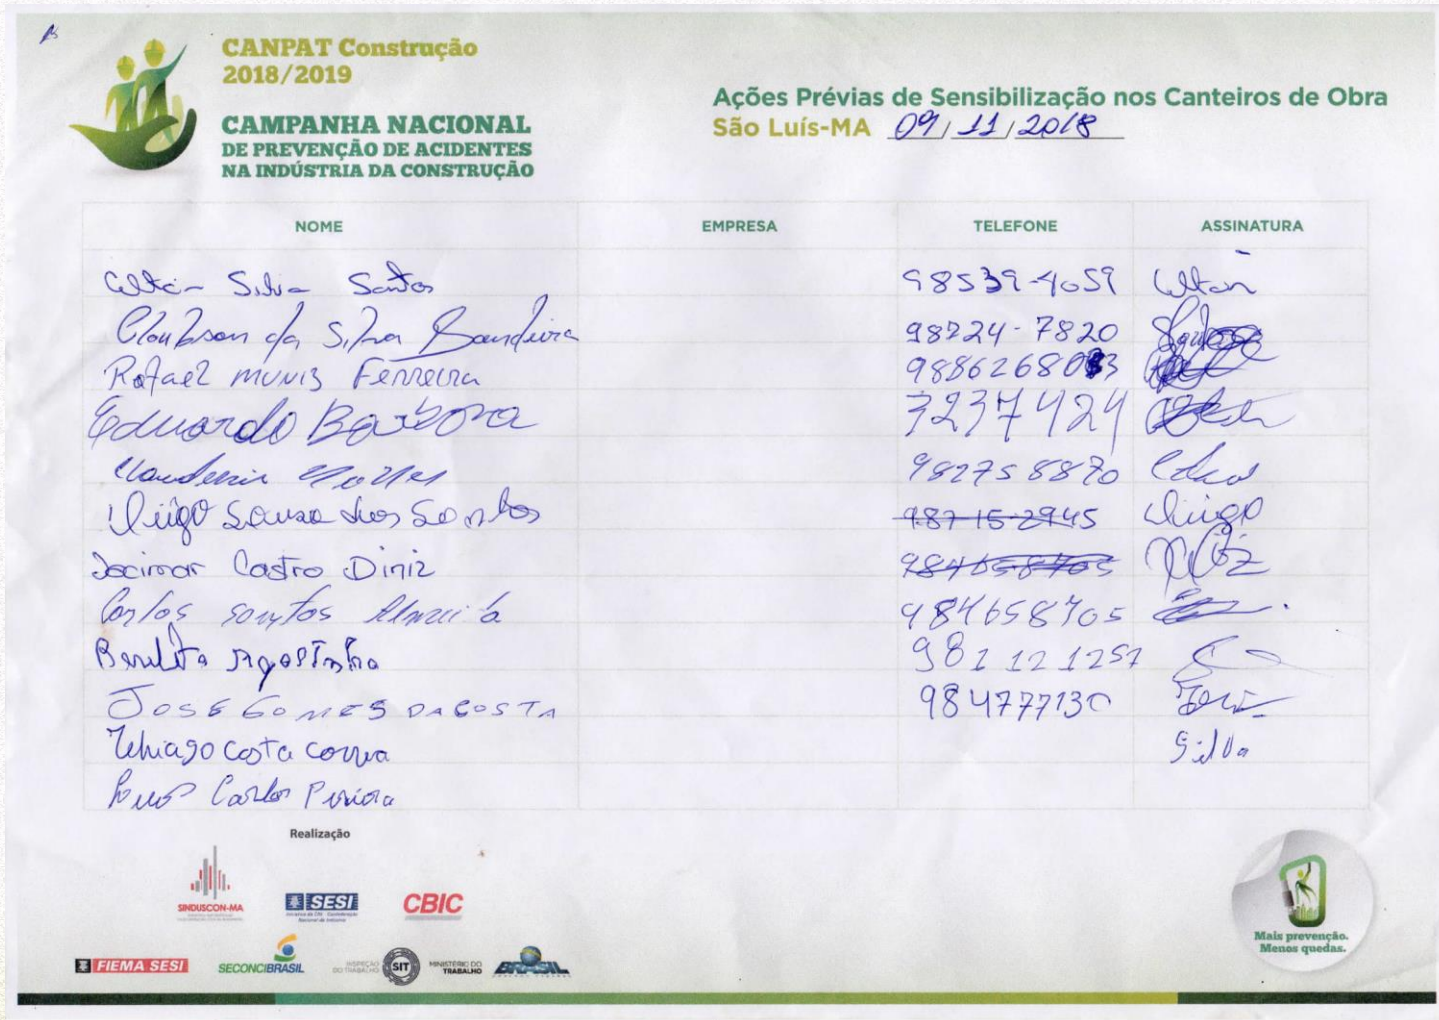 CANPAT Construção
2018/2019
CAMPANHA NACIONAL
DE PREVENÇÃO DE ACIDENTES
NA INDÚSTRIA DA CONSTRUÇÃO
Ações Prévias de Sensibilização nos Canteiros de Obra
São Luís-MA 09/11/2018
NOME EMPRESA TELEFONE ASSINATURA
Silva Santos 98539-4059
da Silva Bandeira 98724-7820
Rafael Muniz Ferreira
Eduardo Barbosa 3237424
982758870
Souza dos Santos 98715-2945
Jocimar Castro Diniz 984658705
Carlos Santos Almeida 984658705
Benedito Agostinho 981121257
JOSE GOMES DA COSTA 984777130
Thiago Costa Correa Silva
Carlos Pereira
Realização
SINDUSCON-MA
SESI
CBIC
FIEMA SESI
SECONCI BRASIL
INSPEÇÃO DO TRABALHO
SIT
MINISTÉRIO DO TRABALHO
BRASIL
Mais prevenção.
Menos quedas.